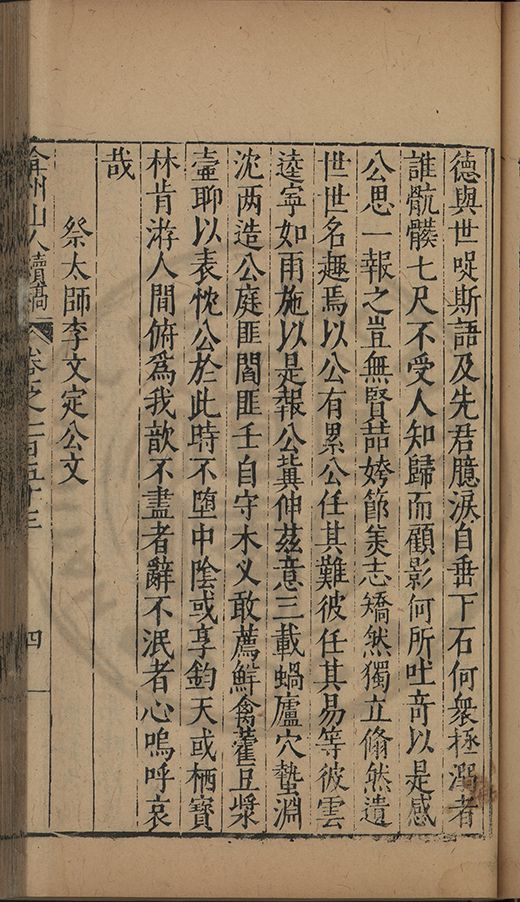 德與世唲斯語及先君臆淚自垂下石何衆拯溺者
誰骯髒七尺不受人知歸而顧影何所吐奇以是感
公思一報之豈無賢喆姱節美志矯然獨立翛然遺
世世名趣焉以公有累公任其難彼任其易等彼雲
逵寧如雨施以是報公冀伸茲意三載蝸廬穴蟄淵
沈两造公庭匪閽匪壬自守木义敢薦鮮禽藿豆漿
壷聊以表忱公於此時不墮中陰或享鈞天或栖寳
林肯游人間俯爲我歆不盡者辭不泯者心嗚呼哀
哉
祭太師李文定公文
弇州山人續稿 卷之一百五十三 四